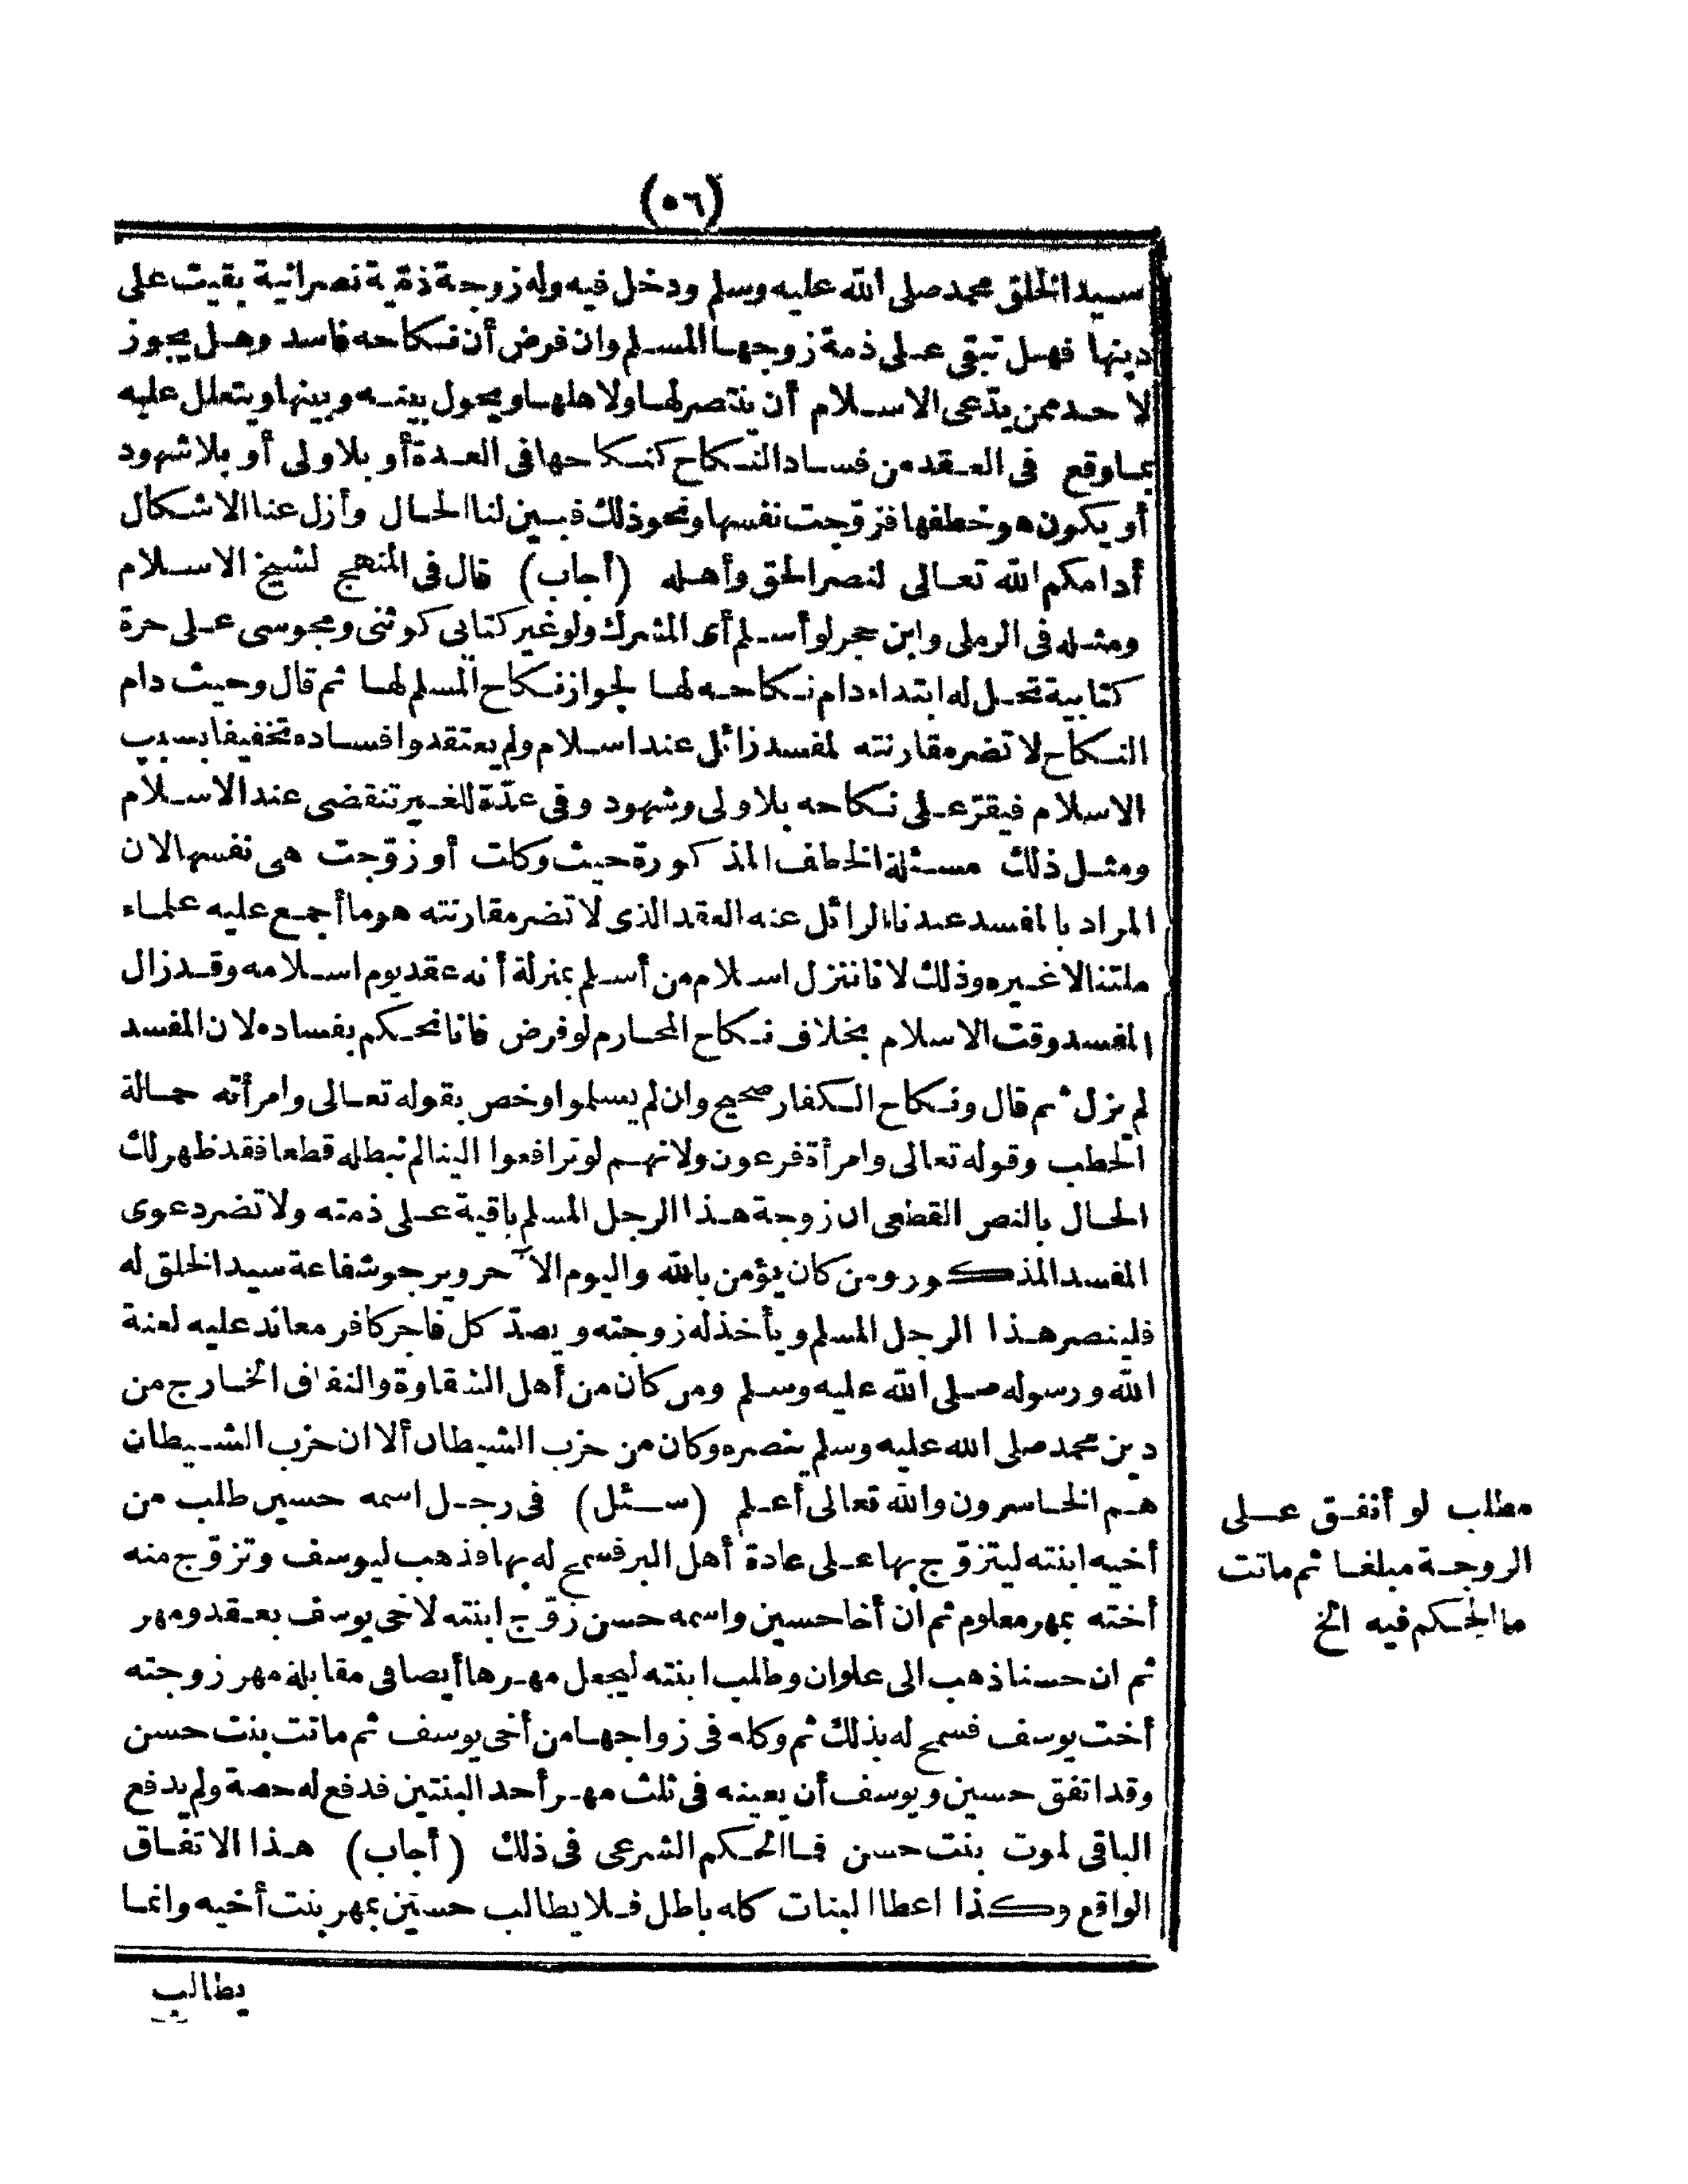 (٥٦)
سيد الخلق محمد صلى الله عليه وسلم ودخل فيه وله زوجة ذمّية نصرانية بقيت على
دينها فهل تبقى على ذمة زوجها المسلم وان فرض أن نكاحه فاسد وهل يجوز
لاحد ممن يدّعى الاسلام أن ينتصر لها ولاهلها ويحول بينه وبينها ويتعلل عليه
بما وقع فى العقد من فساد النكاح كنكاحها فى العدة أو بلا ولى أو بلا شهود
أو يكون هو خطفها فزوّجت نفسها ونحو ذلك فبين لنا الحال وأزل عنا الاشكال
أدامكم الله تعالى لنصر الحق وأهله (أجاب) قال فى المنهج لشيخ الاسلام
ومثله فى الرملى وابن حجر لو أسلم أى المشرك ولو غير كتابى كوثنى ومجوسى على حرة
كتابية تحل له ابتداء دام نكاحه لها لجواز نكاح المسلم لها ثم قال وحيث دام
النكاح لا تضر مقارنته لمفسد زائل عند اسلام ولم يعتقدوا فساده تخفيفا بسبب
الاسلام فيقرّ على نكاحه بلا ولى وشهود وفى عدّة للغير تنقضى عند الاسلام
ومثل ذلك مسئلة الخطف المذكورة حيث وكلت أو زوّجت هى نفسها لان
المراد بالمفسد عندنا الزائل عنه العقد الذى لا تضر مقارنته هو ما أجمع عليه علماء
ملتنا لا غيره وذلك لاننا ننزل اسلام من أسلم بمنزلة أنه عقد يوم اسلامه وقد زال
المفسد وقت الاسلام بخلاف نكاح المحارم لو فرض فانا نحكم بفساده لان المفسد
لم يزل ثم قال ونكاح الكفار صحيح وان لم يسلموا وخص بقوله تعالى وامرأته حمالة
الحطب وقوله تعالى وامرأة فرعون ولانهم لو ترافعوا الينا لم نبطله قطعا فقد ظهر لك
الحال بالنص القطعى ان زوجة هذا الرجل المسلم باقية على ذمته ولا تضر دعوى
المفسد المذكور ومن كان يؤمن بالله واليوم الآخر ويرجو شفاعة سيد الخلق له
فلينصر هذا الرجل المسلم ويأخذ له زوجته ويصدّ كل فاجر كافر معاند عليه لعنة
الله ورسوله صلى الله عليه وسلم ومن كان من أهل الشقاوة والنفاق الخارج من
دين محمد صلى الله عليه وسلم ينصره وكان من حزب الشيطان ألا ان حزب الشيطان
هم الخاسرون والله تعالى أعلم (سئل) فى رجل اسمه حسين طلب من
أخيه ابنته ليتزوّج بها على عادة أهل البر فسمح له بها فذهب ليوسف وتزوّج منه
أخته بمهر معلوم ثم ان أخا حسين واسمه حسن زوّج ابنته لاخى يوسف بعقد ومهر
ثم ان حسنا ذهب الى علوان وطلب ابنته ليجعل مهرها أيضا فى مقابلة مهر زوجته
أخت يوسف فسمح له بذلك ثم وكله فى زواجها من أخى يوسف ثم ماتت بنت حسن
وقد اتفق حسين ويوسف أن يعينه فى ثلث مهر أحد البنتين فدفع له حصة ولم يدفع
الباقى لموت بنت حسن فما الحكم الشرعى فى ذلك (أجاب) هذا الاتفاق
الواقع وكذا اعطا البنات كله باطل فلا يطالب حسين بمهر بنت أخيه وانما
يطالب
مطلب لو أنفق على
الزوجة مبلغا ثم ماتت
ما الحكم فيه الخ